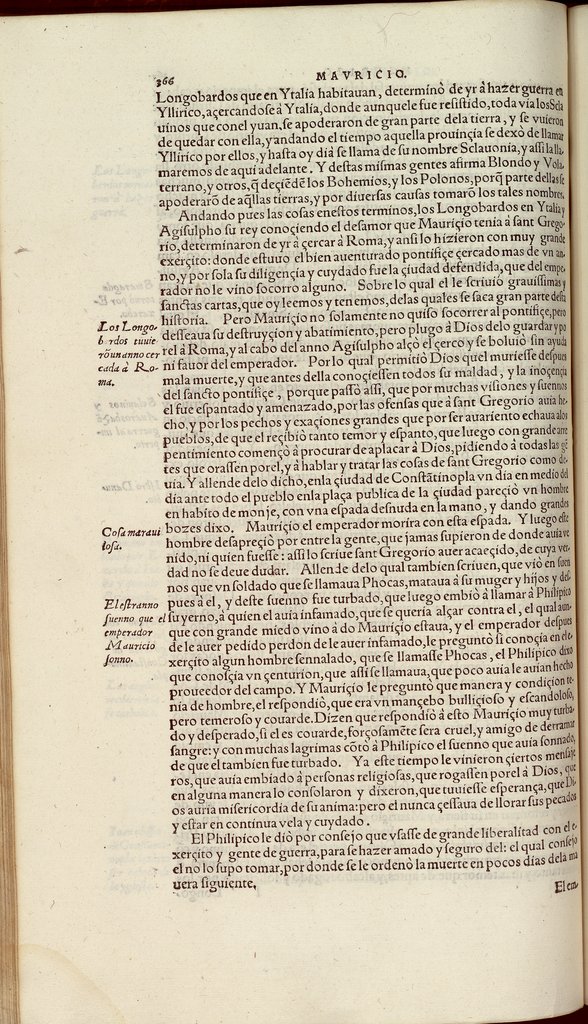 366
MAVRICIO.
Longobardos que en Ytalia habitauan, determinò de yr à hazer guerra en
Yllirico, açercandose a Ytalia, donde aunquele fue resistido, toda vía los Scla
uinos que conel yuan, se apoderaron de gran parte dela tierra, y se vuieron
de quedar con ella, y andando el tiempo aquella prouinçia se dexò de llamar
Yllirico por ellos, y hasta oy dìa se llama de su nombre Sclauonia, y assi la lla-
maremos de aqui adelante. Y destas mismas gentes afirma Blondo y Vola-
terrano, y otros, q̃ deçiẽdẽ los Bohemios, y los Polonos, porq̃ parte dellas se
apoderarõ de aq̃llas tierras, y por diuersas causas tomarõ los tales nombres.
Andando pues las cosas enestos terminos, los Longobardos en Ytalia y
Agisulpho su rey conoçiendo el desamor que Mauriçio tenia a sant Grego-
rio, determinaron de yr a çercar à Roma, y ansi lo hizieron con muy grande
exerçito: donde estuuo el bien auenturado pontifiçe çercado mas de vn an-
no, y por sola su diligençia y cuydado fue la çiudad defendida, que del empe-
rador no le vino socorro alguno. Sobre lo qual el le scriuiò grauissimas y
sanctas cartas, que oy leemos y tenemos, delas quales se saca gran parte desta
historia. Pero Mauriçio no solamente no quiso socorrer al pontifiçe, pero
desseaua su destruyçion y abatimiento, pero plugo à Dios delo guardar y po
rel à Roma, y al cabo del anno Agisulpho alçò el çerco y se boluiò sin ayuda
ni fauor del emperador. Por lo qual permitiò Dios quel muriesse despues
mala muerte, y que antes della conoçiessen todos su maldad, y la inoçençia
del sancto pontifiçe, porque passò assi, que por muchas visiones y suennos
el fue espantado y amenazado, por las ofensas que à sant Gregorio auia he-
cho, y por los pechos y exaçiones grandes que por ser auariento echaua alos
pueblos, de que el reçibiò tanto temor y espanto, que luego con grande arre
pentimiento començò a procurar de aplacar à Dios, pidiendo à todas las gẽ
tes que orassen porel, y à hablar y tratar las cosas de sant Gregorio como de-
uia. Y allende delo dicho, enla çiudad de Constãtinopla vn dia en medio del
dia ante todo el pueblo enla plaça publica de la çiudad pareçiò vn hombre
en habito de monje, con vna espada desnuda en la mano, y dando grandes
bozes dixo. Mauriçio el emperador morira con esta espada. Y luego este
hombre desapreçiò por entre la gente, que jamas supieron de donde auia ve
nido, ni quien fuesse: assi lo scriue sant Gregorio auer acaeçido, de cuya ver-
dad no se deue dudar. Allende delo qual tambien scriuen, que viò en suen
nos que vn soldado que se llamaua Phocas, mataua à su muger y hijos y des-
pues à el, y deste suenno fue turbado, que luego embiò à llamar à Philipico
su yerno, à quien el auia infamado, que se queria alçar contra el, el qual aun-
que con grande miedo vino à do Mauriçio estaua, y el emperador despues
de le auer pedido perdon de le auer infamado, le preguntò si conoçia en el e-
xerçito algun hombre sennalado, que se llamasse Phocas, el Philipico dixo
que conosçia vn çenturion, que assi se llamaua, que poco auia le auian hecho
proueedor del campo. Y Mauriçio le preguntò que manera y condiçion te-
nia de hombre, el respondiò, que era vn mançebo bulliçioso y escandoloso,
pero temeroso y couarde. Dizen que respondiò à esto Mauriçio muy turba-
do y desperado, si el es couarde, forçosamẽte sera cruel, y amigo de derramar
sangre: y con muchas lagrimas cõtò à Philipico el suenno que auia sonnado,
de que el tambien fue turbado. Ya este tiempo le vinieron çiertos mensaje
ros, que auia embiado à personas religiosas, que rogassen porel à Dios, que
en alguna manera lo consolaron y dixeron, que tuuiesse esperança, que Di-
os auria misericordia de su anima: pero el nunca çessaua de llorar sus pecados
y estar en continua vela y cuydado.
El Philipico le diò por consejo que vsasse de grande liberalitad con el e-
xerçito y gente de guerra, para se hazer amado y seguro del: el qual consejo
el no lo supo tomar, por donde se le ordenò la muerte en pocos dias dela ma
uera siguiente,
El em
Los Longo-
b rdos tuuie
rõ un anno cer
cada à Ro-
ma.
Cosa maraui
losa.
El estranno
suenno que el
emperador
Mauricio
sonno.